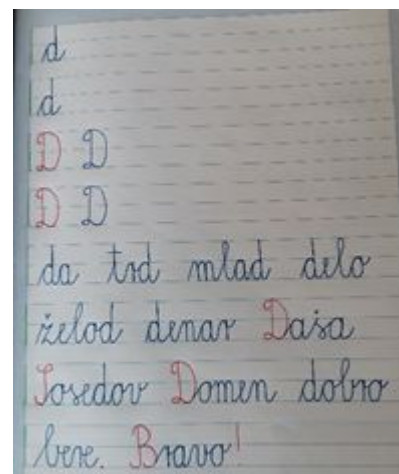 d
d
D D
D D
da trd mlad delo
želod denar Daša
Sosedov Domen dobro
bere. Bravo!